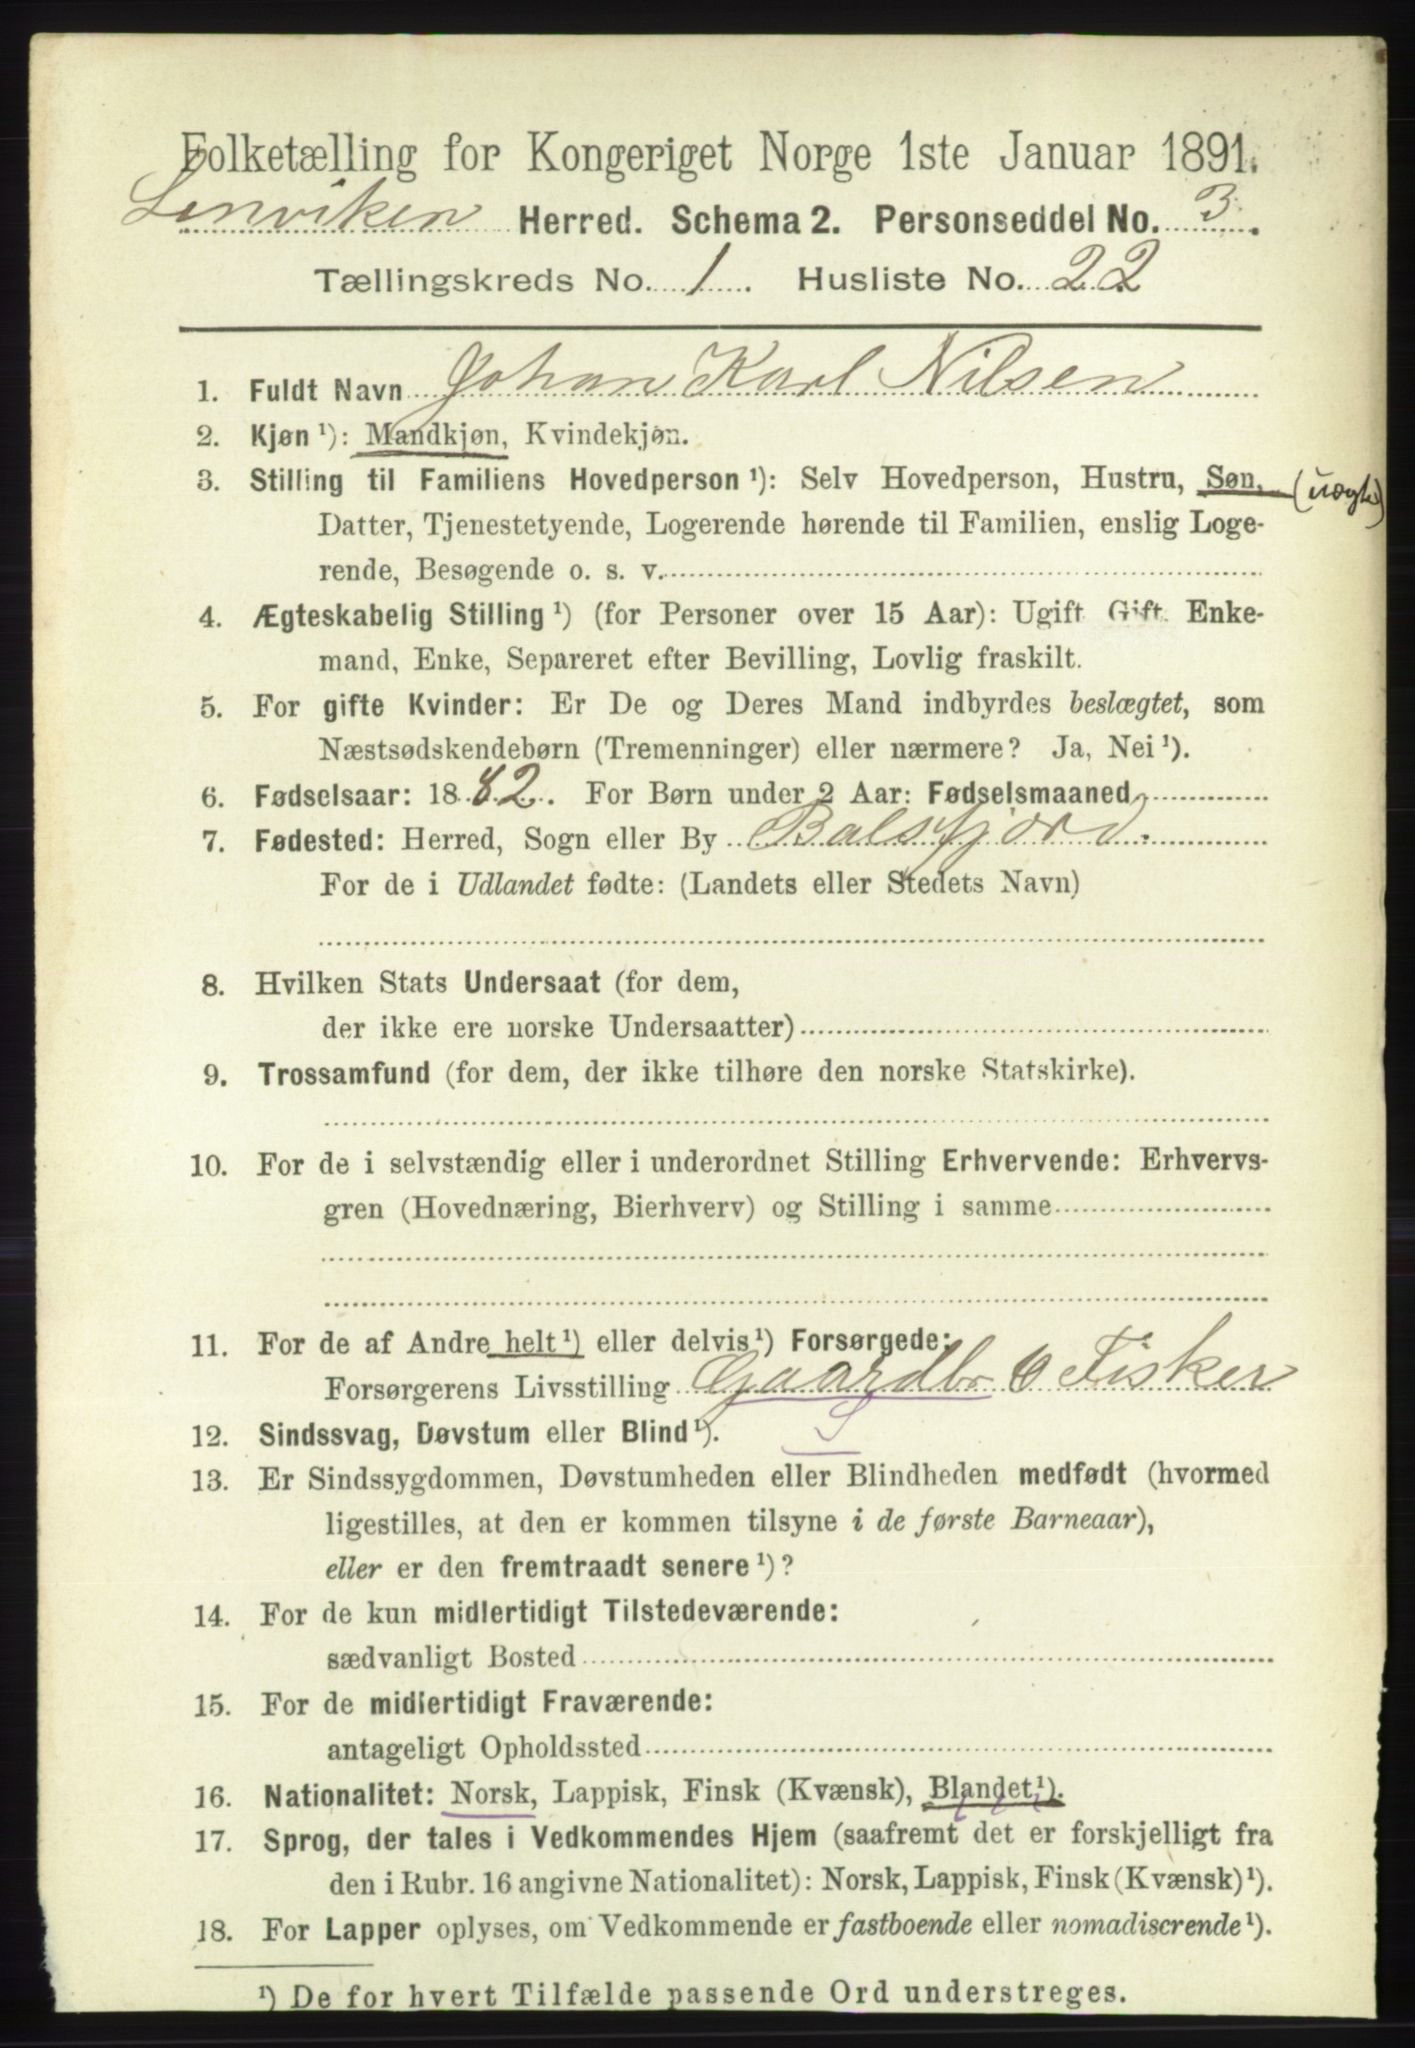 Folketælling for Kongeriget Norge 1ste Januar 1891.
Lenviken Herred. Schema 2. Personseddel No. 3.
Tællingskreds No. 1. Husliste No. 22
1. Fuldt Navn Johan Karl Nilsen
2. Kjøn ¹): Mandkjøn, Kvindekjøn.
3. Stilling til Familiens Hovedperson ¹): Selv Hovedperson, Hustru, Søn, (uægte)
Datter, Tjenestetyende, Logerende hørende til Familien, enslig Loge-
rende, Besøgende o. s. v.
4. Ægteskabelig Stilling ¹) (for Personer over 15 Aar): Ugift Gift. Enke-
mand, Enke, Separeret efter Bevilling, Lovlig fraskilt.
5. For gifte Kvinder: Er De og Deres Mand indbyrdes beslægtet, som
Næstsødskendebørn (Tremenninger) eller nærmere? Ja, Nei ¹).
6. Fødselsaar: 1882. For Børn under 2 Aar: Fødselsmaaned
7. Fødested: Herred, Sogn eller By Balsfjord.
For de i Udlandet fødte: (Landets eller Stedets Navn)
8. Hvilken Stats Undersaat (for dem,
der ikke ere norske Undersaatter)
9. Trossamfund (for dem, der ikke tilhøre den norske Statskirke).
10. For de i selvstændig eller i underordnet Stilling Erhvervende: Erhvervs-
gren (Hovednæring, Bierhverv) og Stilling i samme
11. For de af Andre helt ¹) eller delvis ¹) Forsørgede:
Forsørgerens Livsstilling Gaardbr. & Fisker
S
12. Sindssvag, Døvstum eller Blind ¹).
13. Er Sindssygdommen, Døvstumheden eller Blindheden medfødt (hvormed
ligestilles, at den er kommen tilsyne i de første Barneaar),
eller er den fremtraadt senere ¹)?
14. For de kun midlertidigt Tilstedeværende:
sædvanligt Bosted
15. For de midlertidigt Fraværende:
antageligt Opholdssted
16. Nationalitet: Norsk, Lappisk, Finsk (Kvænsk), Blandet ¹).
17. Sprog, der tales i Vedkommendes Hjem (saafremt det er forskjelligt fra
den i Rubr. 16 angivne Nationalitet): Norsk, Lappisk, Finsk (Kvænsk) ¹).
18. For Lapper oplyses, om Vedkommende er fastboende eller nomadiserende ¹).
¹) De for hvert Tilfælde passende Ord understreges.